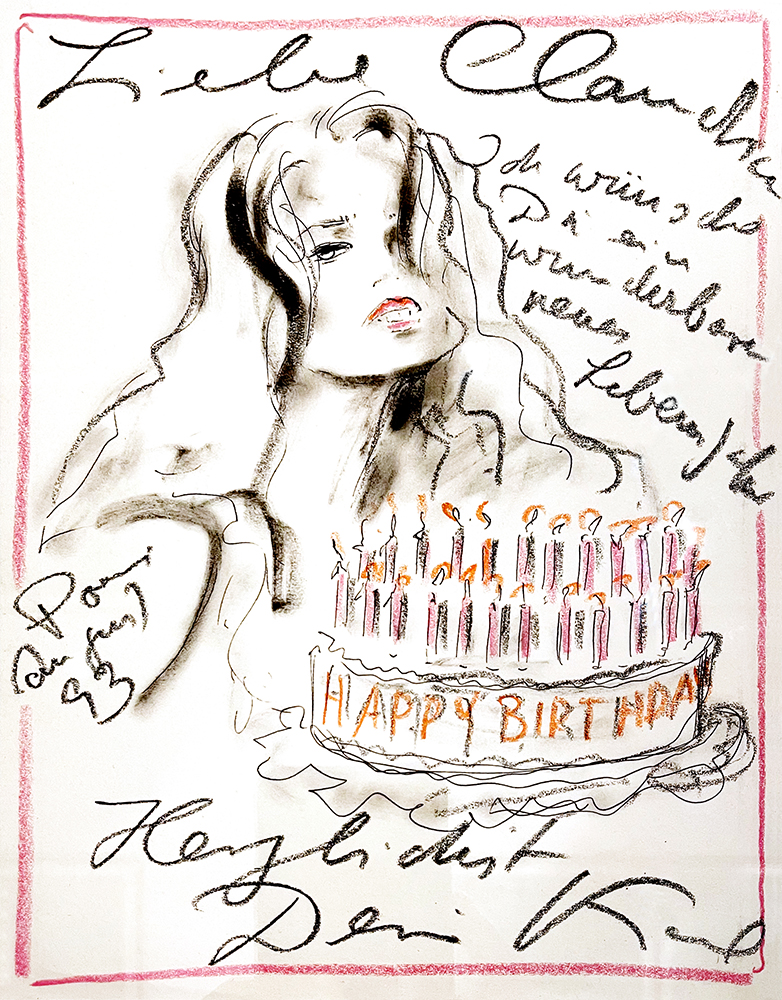 Liebe Claudia
Ich wünsche
Dir ein
wunderbares
neues
Lebensjahr
HAPPY BIRTHDAY
Paris
August
93
Herzlichst
Dein Karl